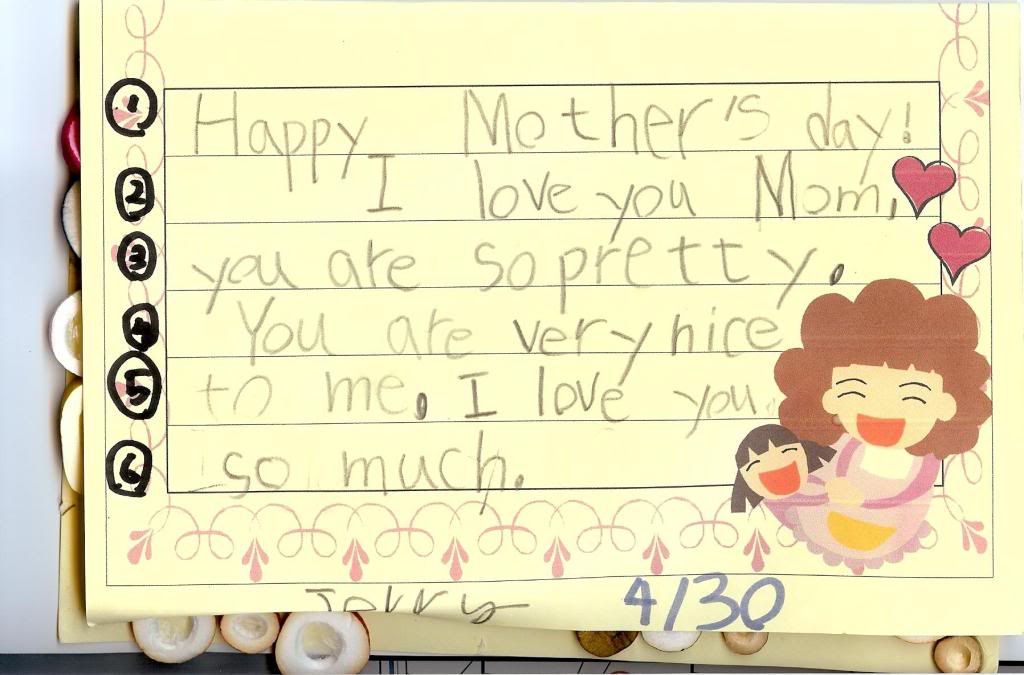 1 Happy Mother's day!
2 I love you Mom,
3 you are so pretty.
4 You are very nice
5 to me. I love you
6 so much.
Jerry 4/30